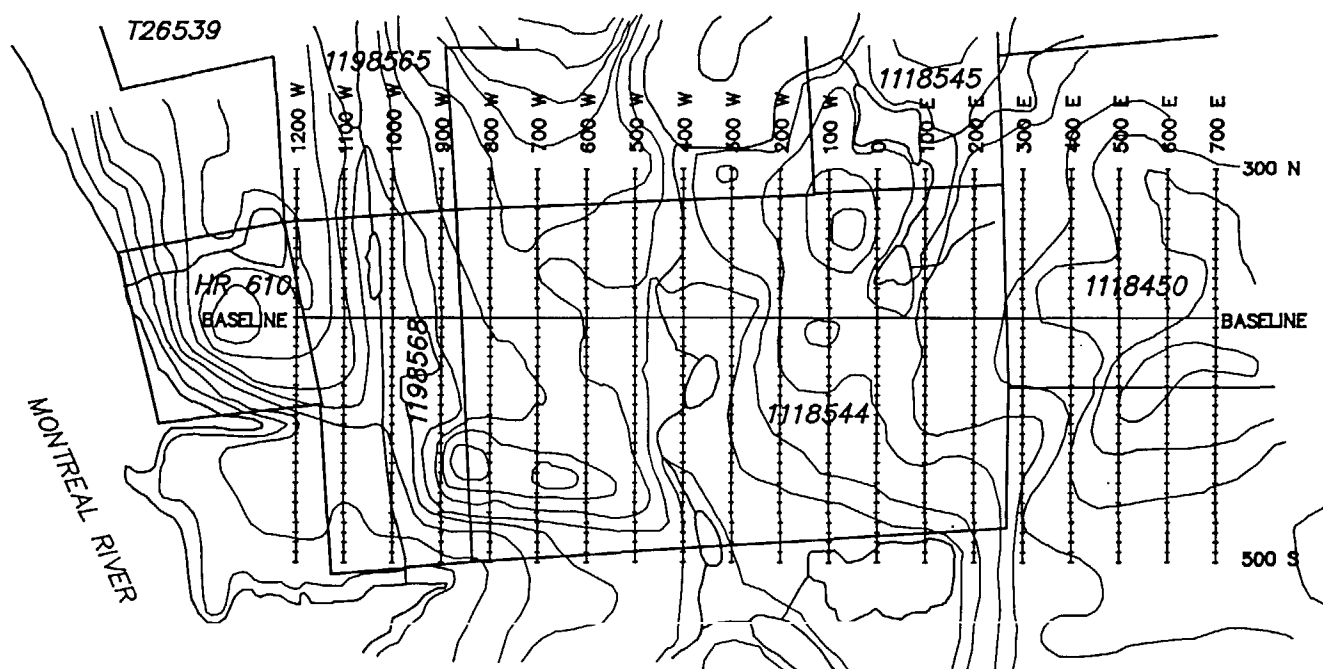 T26539
1198565
1118545
1200 W
1100 W
1000 W
900 W
800 W
700 W
600 W
500 W
400 W
300 W
200 W
100 W
0
100 E
200 E
300 E
400 E
500 E
600 E
700 E
300 N
HR 610
1118450
BASELINE
BASELINE
1198568
1118544
MONTREAL RIVER
500 S